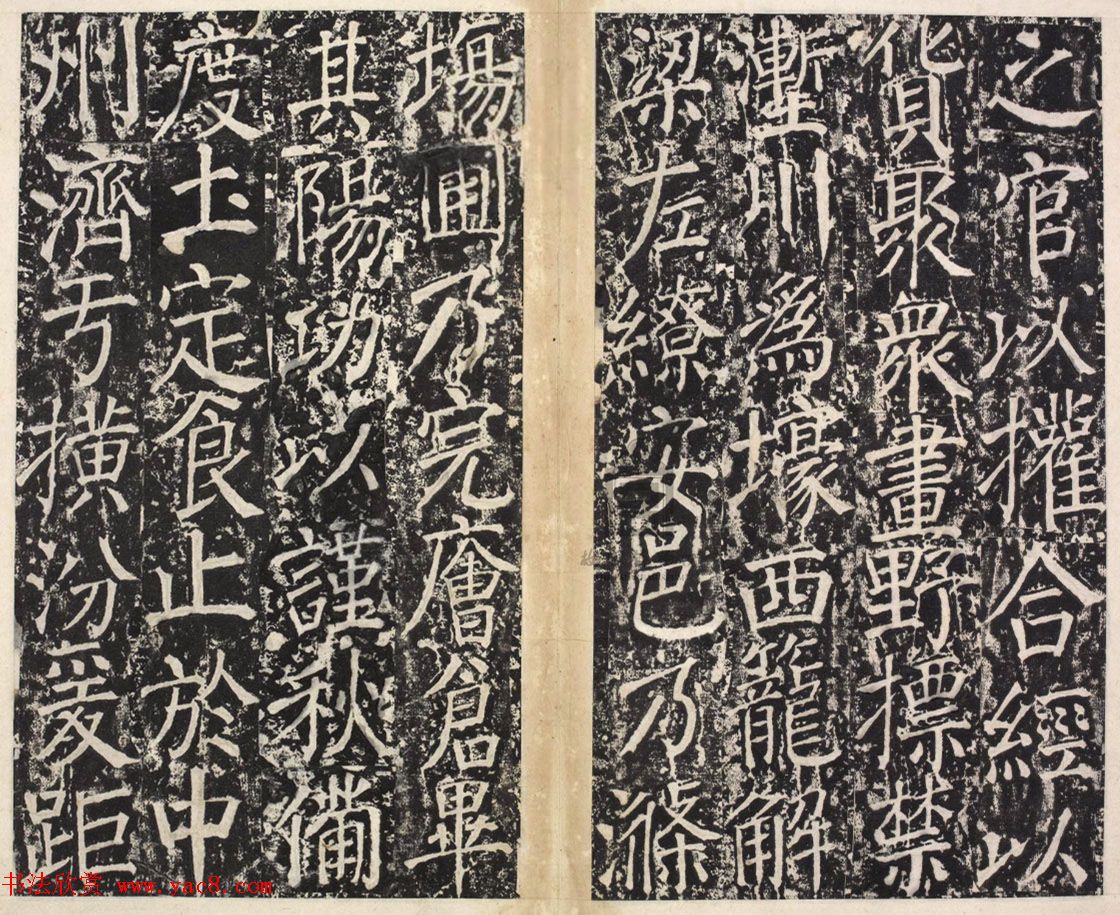 之官以權合經以
貨聚衆畫野摽禁
壍川為壕西籠解
梁左繚安邑乃滌
場圃乃完廥倉畢
其陽功以謹秋備
度土定食止於中
州濟亏撗汾爰距
书法欣赏 www.yac8.com